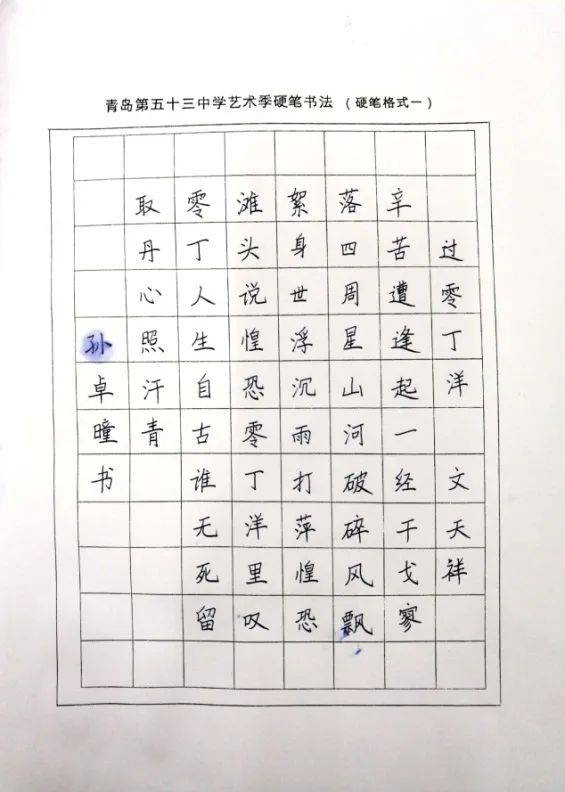 青岛第五十三中学艺术季硬笔书法 （硬笔格式一）
过零丁洋 文天祥
辛苦遭逢起一经干戈寥
落四周星山河破碎风飘
絮身世浮沉雨打萍惶恐
滩头说惶恐零丁洋里叹
零丁人生自古谁无死留
取丹心照汗青
孙卓曈书